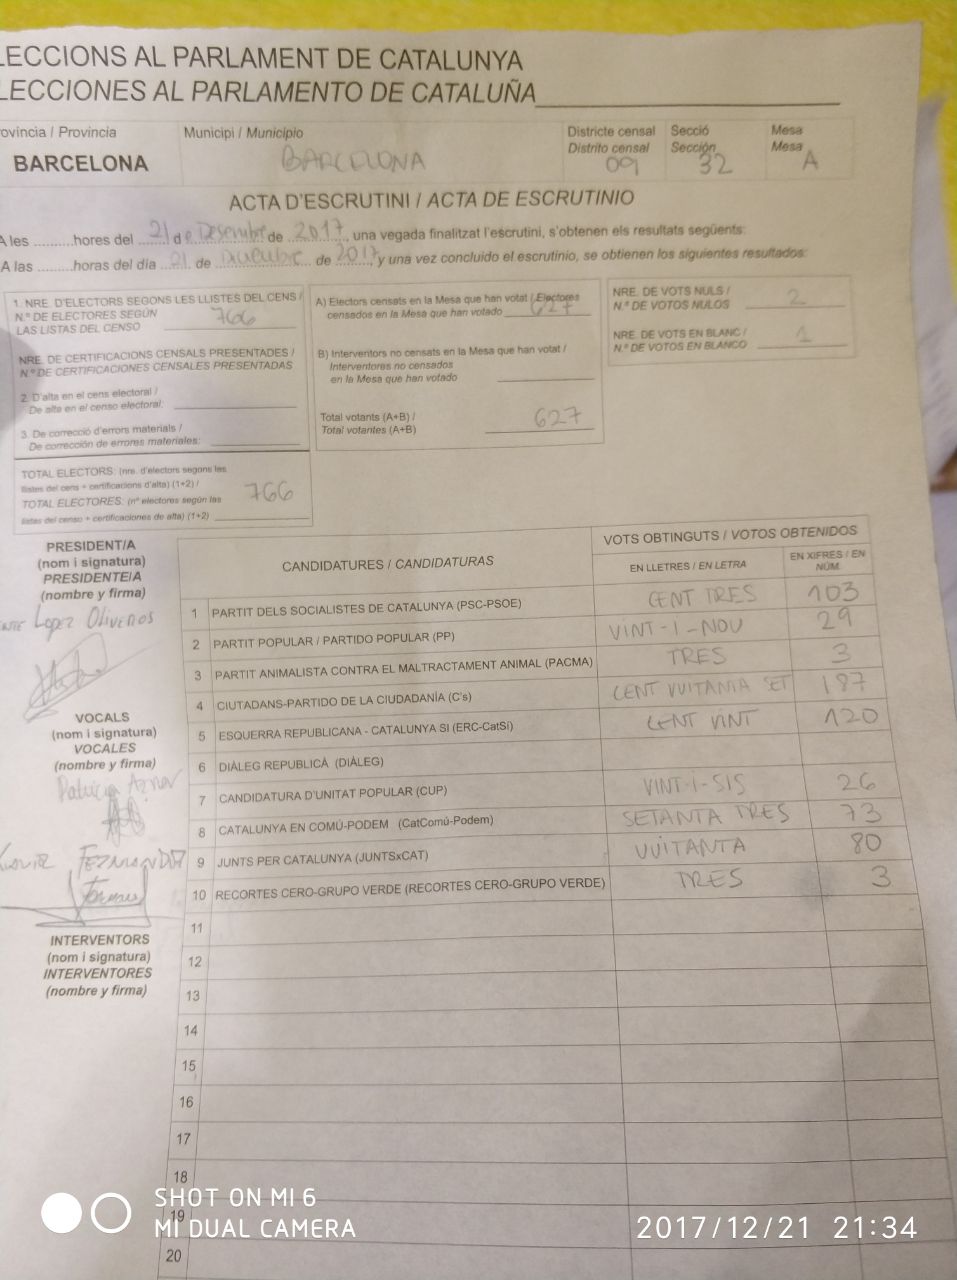 LECCIONS AL PARLAMENT DE CATALUNYA
LECCIONES AL PARLAMENTO DE CATALUÑA
rovíncia / Provincia
BARCELONA
Municipi / Municipio
BARCELONA
Districte censal
Distrito censal
09
Secció
Sección
32
Mesa
Mesa
A
ACTA D'ESCRUTINI / ACTA DE ESCRUTINIO
A les .........hores del 21 de Desembre de 2017, una vegada finalitzat l'escrutini, s'obtenen els resultats següents:
A las .........horas del día 21 de de 2017, y una vez concluido el escrutinio, se obtienen los siguientes resultados:
1. NRE. D'ELECTORS SEGONS LES LLISTES DEL CENS /
N.º DE ELECTORES SEGÚN
LAS LISTAS DEL CENSO
766
NRE. DE CERTIFICACIONS CENSALS PRESENTADES /
N.º DE CERTIFICACIONES CENSALES PRESENTADAS
2. D'alta en el cens electoral /
De alta en el censo electoral:
3. De correcció d'errors materials /
De corrección de errores materiales:
TOTAL ELECTORS: (nre. d'electors segons les
llistes del cens + certificacions d'alta) (1+2) /
TOTAL ELECTORES: (nº electores según las
listas del censo + certificaciones de alta) (1+2)
766
A) Electors censats en la Mesa que han votat / Electores
censados en la Mesa que han votado
627
B) Interventors no censats en la Mesa que han votat /
Interventores no censados
en la Mesa que han votado
Total votants (A+B) /
Total votantes (A+B)
627
NRE. DE VOTS NULS /
N.º DE VOTOS NULOS
2
NRE. DE VOTS EN BLANC /
N.º DE VOTOS EN BLANCO
1
PRESIDENT/A
(nom i signatura)
PRESIDENTE/A
(nombre y firma)
Lopez Oliveros
VOCALS
(nom i signatura)
VOCALES
(nombre y firma)
Patricia Aznar
INTERVENTORS
(nom i signatura)
INTERVENTORES
(nombre y firma)
CANDIDATURES / CANDIDATURAS
VOTS OBTINGUTS / VOTOS OBTENIDOS
EN LLETRES / EN LETRA
EN XIFRES / EN
NÚM.
1 PARTIT DELS SOCIALISTES DE CATALUNYA (PSC-PSOE) CENT TRES 103
2 PARTIT POPULAR / PARTIDO POPULAR (PP) VINT-I-NOU 29
3 PARTIT ANIMALISTA CONTRA EL MALTRACTAMENT ANIMAL (PACMA) TRES 3
4 CIUTADANS-PARTIDO DE LA CIUDADANÍA (C's) CENT VUITANTA SET 187
5 ESQUERRA REPUBLICANA - CATALUNYA SI (ERC-CatSí) CENT VINT 120
6 DIÀLEG REPUBLICÀ (DIÀLEG)
7 CANDIDATURA D'UNITAT POPULAR (CUP) VINT-I-SIS 26
8 CATALUNYA EN COMÚ-PODEM (CatComú-Podem) SETANTA TRES 73
9 JUNTS PER CATALUNYA (JUNTSxCAT) VUITANTA 80
10 RECORTES CERO-GRUPO VERDE (RECORTES CERO-GRUPO VERDE) TRES 3
11
12
13
14
15
16
17
18
19
20
SHOT ON MI 6
MI DUAL CAMERA
2017/12/21 21:34